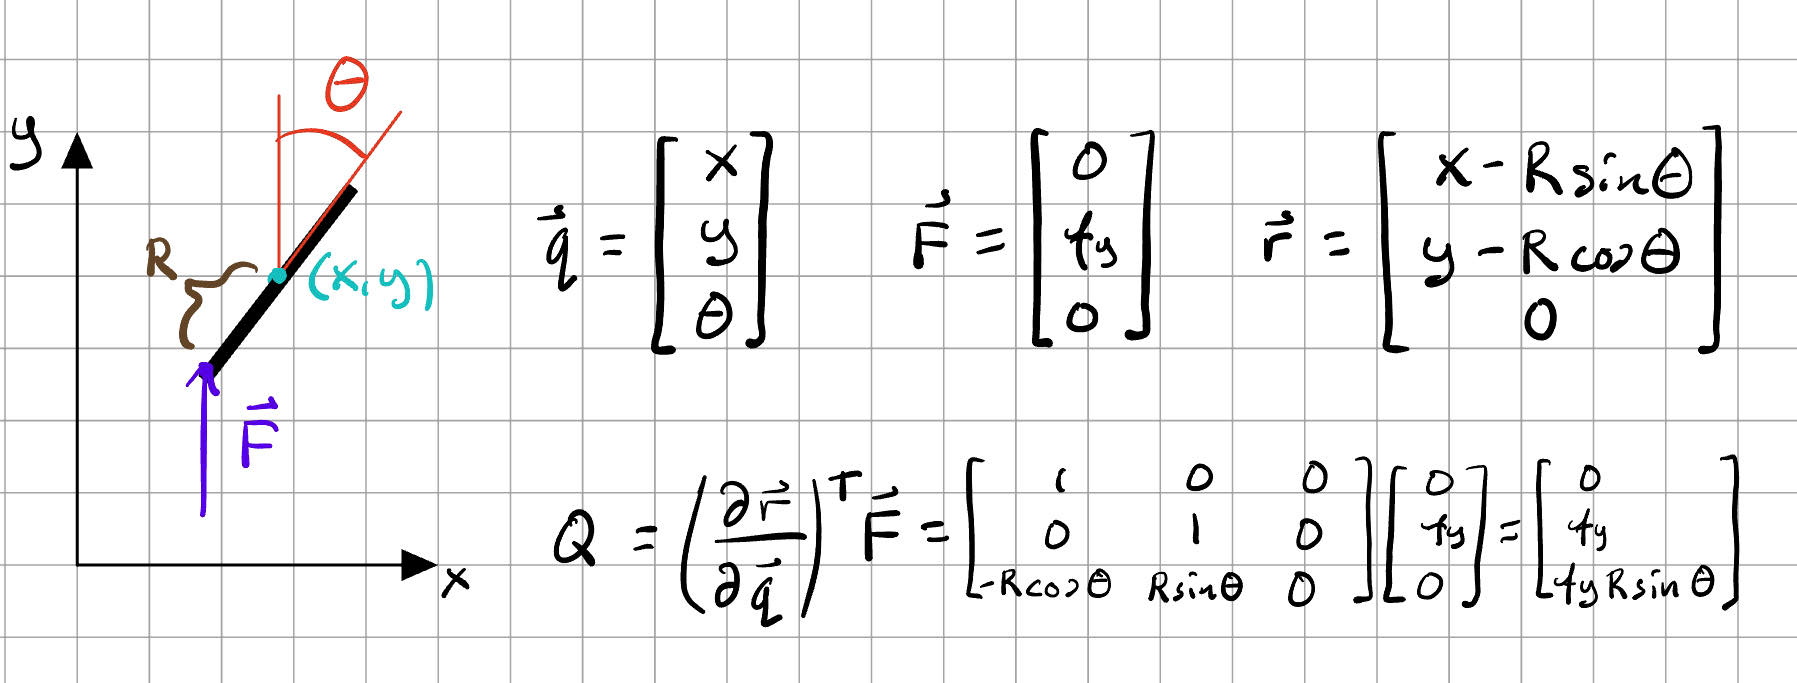 θ
y
R
(x,y)
F⃗
x
q⃗ = [x y θ] F⃗ = [0 fy 0] r⃗ = [x - R sinθ y - R cosθ 0]
Q = (∂r⃗/∂q⃗)ᵀ F⃗ = [1 0 0; 0 1 0; -R cosθ R sinθ 0] [0 fy 0] = [0 fy fy R sinθ]